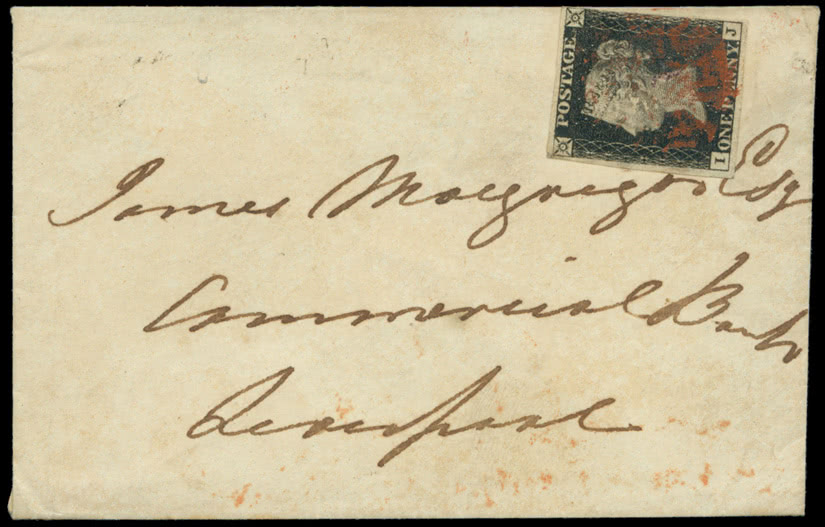 POSTAGE
ONE PENNY
I J
James Macgregor Esq
Commercial Bank
Liverpool